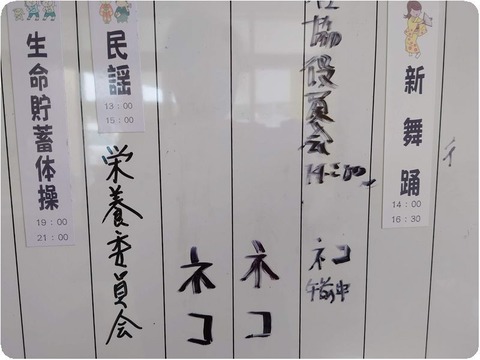 新舞踊
14:00
16:30
協役員会
ネコ
午前中
ネコ
ネコ
民謡
13:00
15:00
栄養委員会
生命貯蓄体操
19:00
21:00